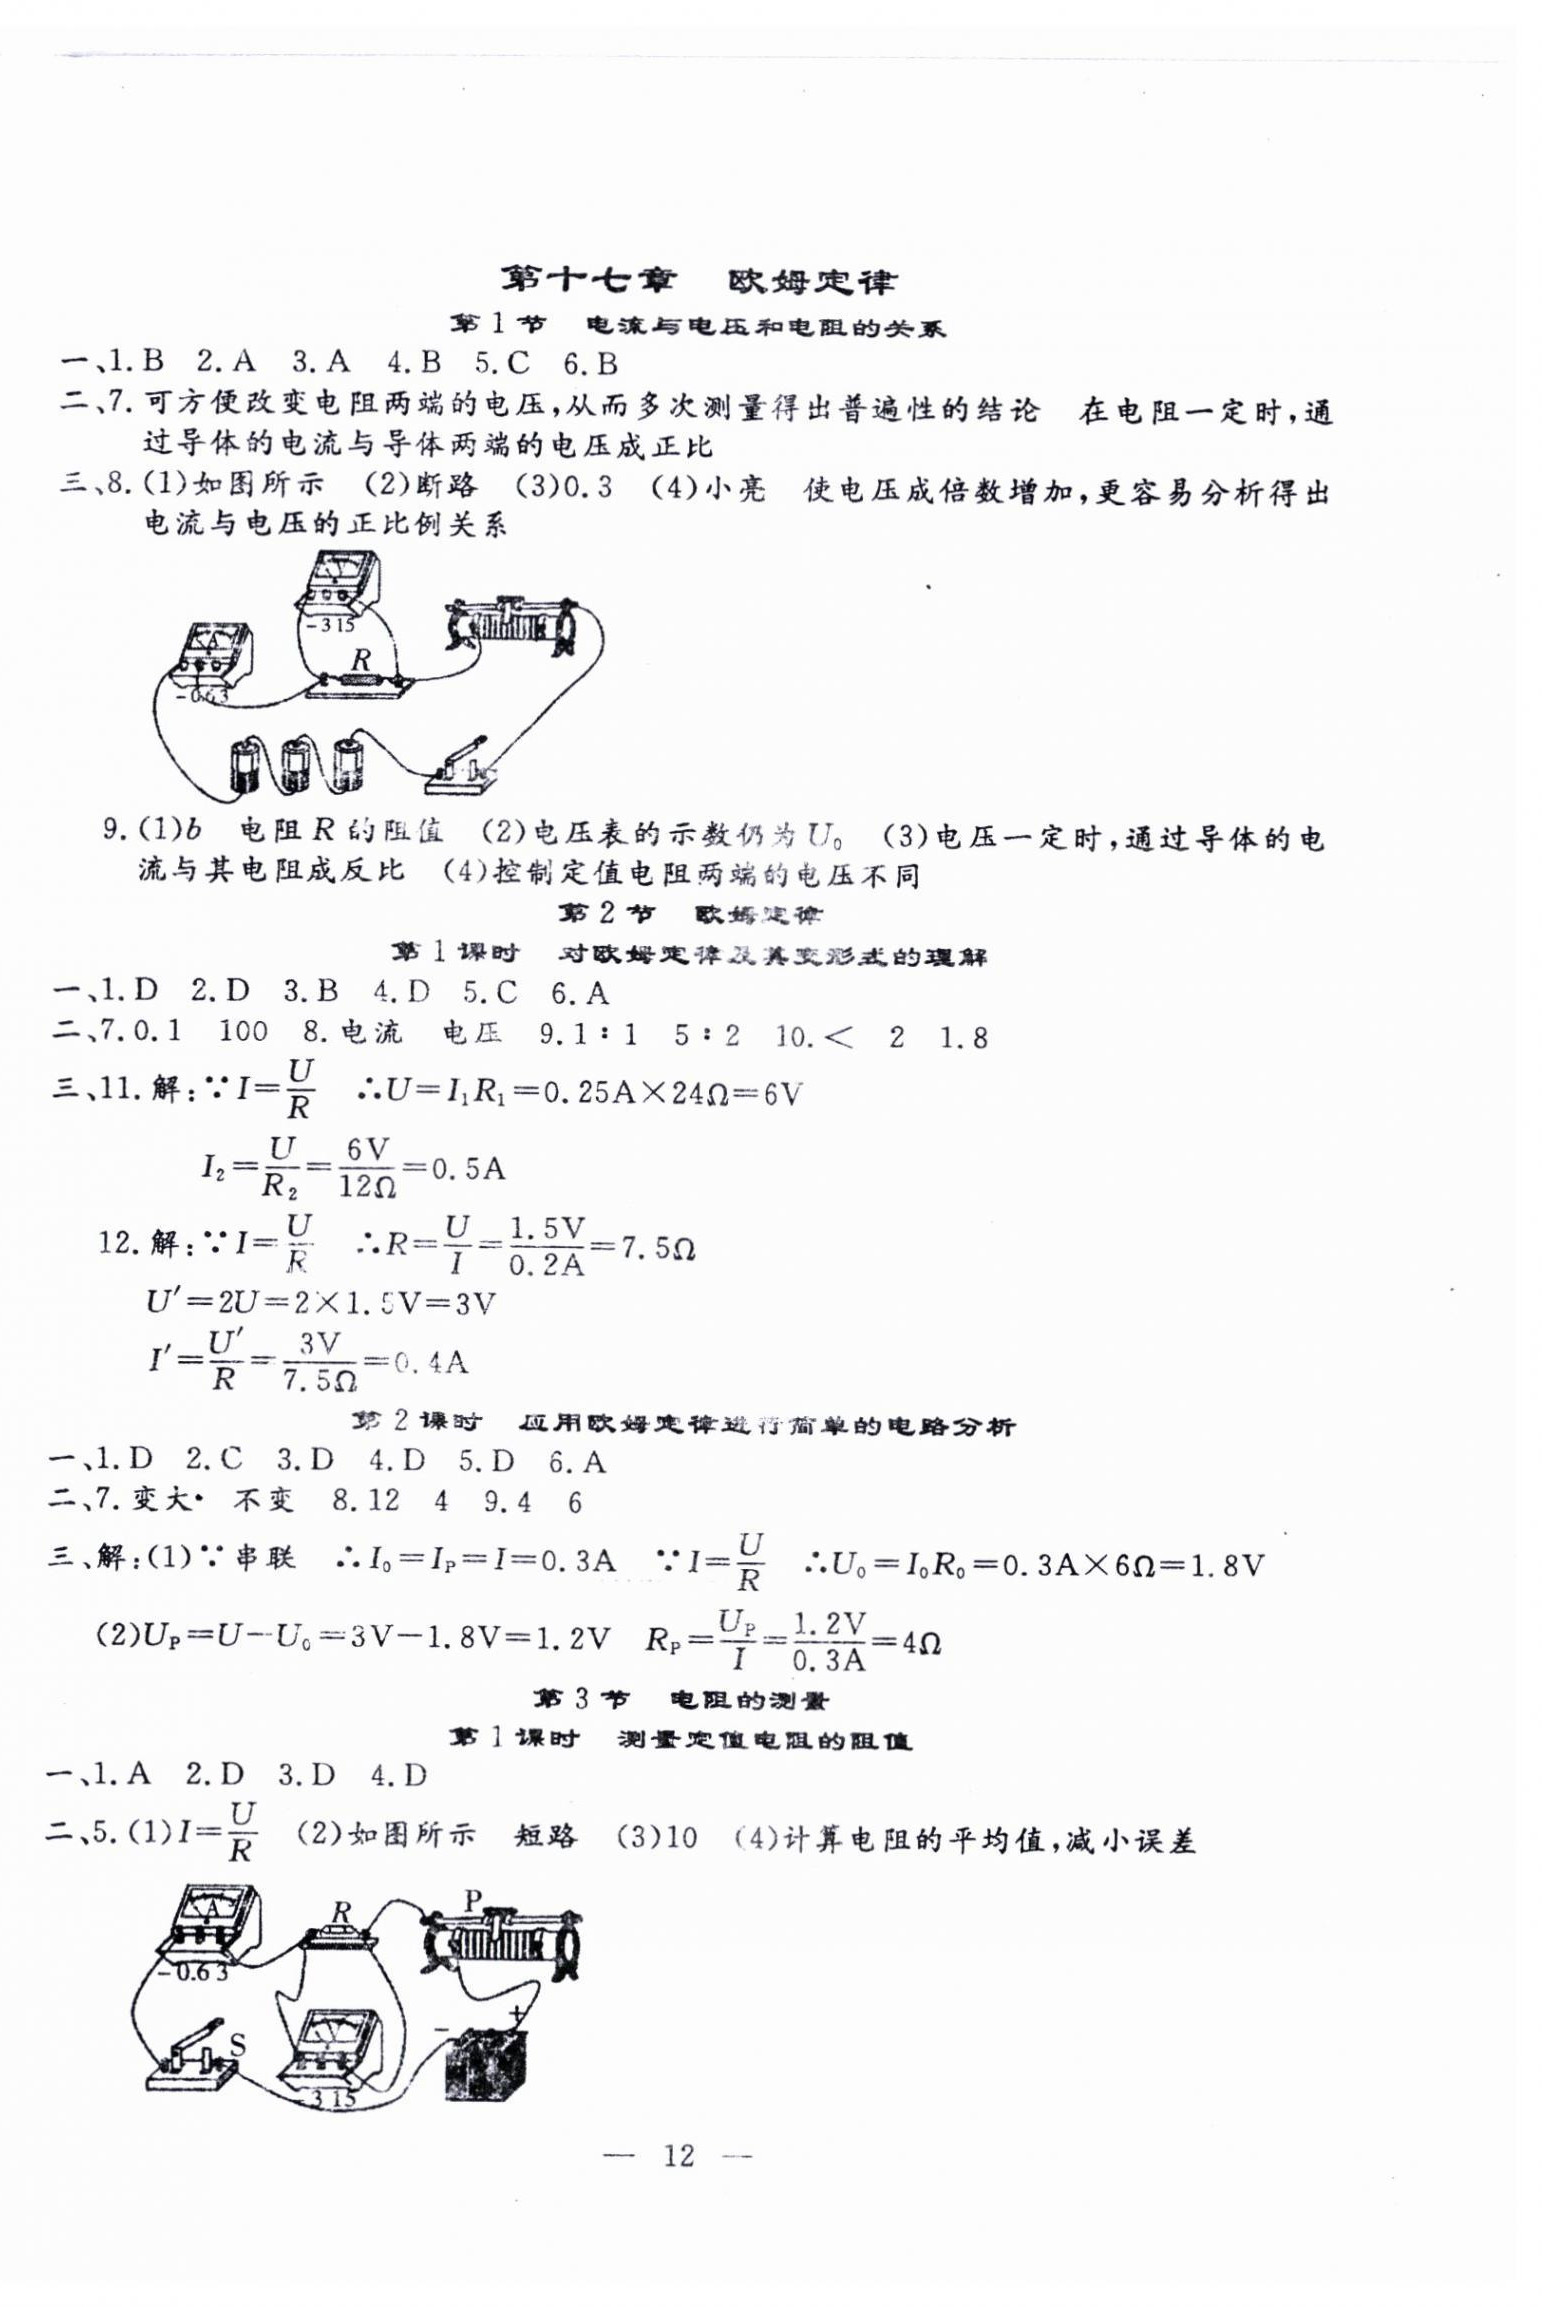 第十七章 欧姆定律
第1节 电流与电压和电阻的关系
一、1.B 2.A 3.A 4.B 5.C 6.B
二、7.可方便改变电阻两端的电压,从而多次测量得出普遍性的结论 在电阻一定时,通
过导体的电流与导体两端的电压成正比
三、8.(1)如图所示 (2)断路 (3)0.3 (4)小亮 使电压成倍数增加,更容易分析得出
电流与电压的正比例关系
V
-3 15
A
R
-0.6 3
9.(1)b 电阻R的阻值 (2)电压表的示数仍为U₀ (3)电压一定时,通过导体的电
流与其电阻成反比 (4)控制定值电阻两端的电压不同
第2节 欧姆定律
第1课时 对欧姆定律及其变形式的理解
一、1.D 2.D 3.B 4.D 5.C 6.A
二、7.0.1 100 8.电流 电压 9.1∶1 5∶2 10.< 2 1.8
三、11.解:∵I=U/R ∴U=I₁R₁=0.25A×24Ω=6V
I₂=U/R₂=6V/12Ω=0.5A
12.解:∵I=U/R ∴R=U/I=1.5V/0.2A=7.5Ω
U′=2U=2×1.5V=3V
I′=U′/R=3V/7.5Ω=0.4A
第2课时 应用欧姆定律进行简单的电路分析
一、1.D 2.C 3.D 4.D 5.D 6.A
二、7.变大 不变 8.12 4 9.4 6
三、解:(1)∵串联 ∴I₀=I_P=I=0.3A ∵I=U/R ∴U₀=I₀R₀=0.3A×6Ω=1.8V
(2)U_P=U-U₀=3V-1.8V=1.2V R_P=U_P/I=1.2V/0.3A=4Ω
第3节 电阻的测量
第1课时 测量定值电阻的阻值
一、1.A 2.D 3.D 4.D
二、5.(1)I=U/R (2)如图所示 短路 (3)10 (4)计算电阻的平均值,减小误差
A
R
P
-0.6 3
+
-
S
V
-3 15
— 12 —